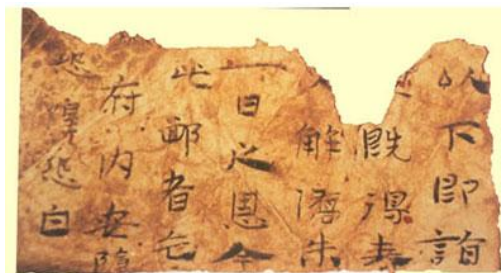 以下即詣
既得表
解未
一日之恩今
此郵者
府内安隱
恐惶恐白